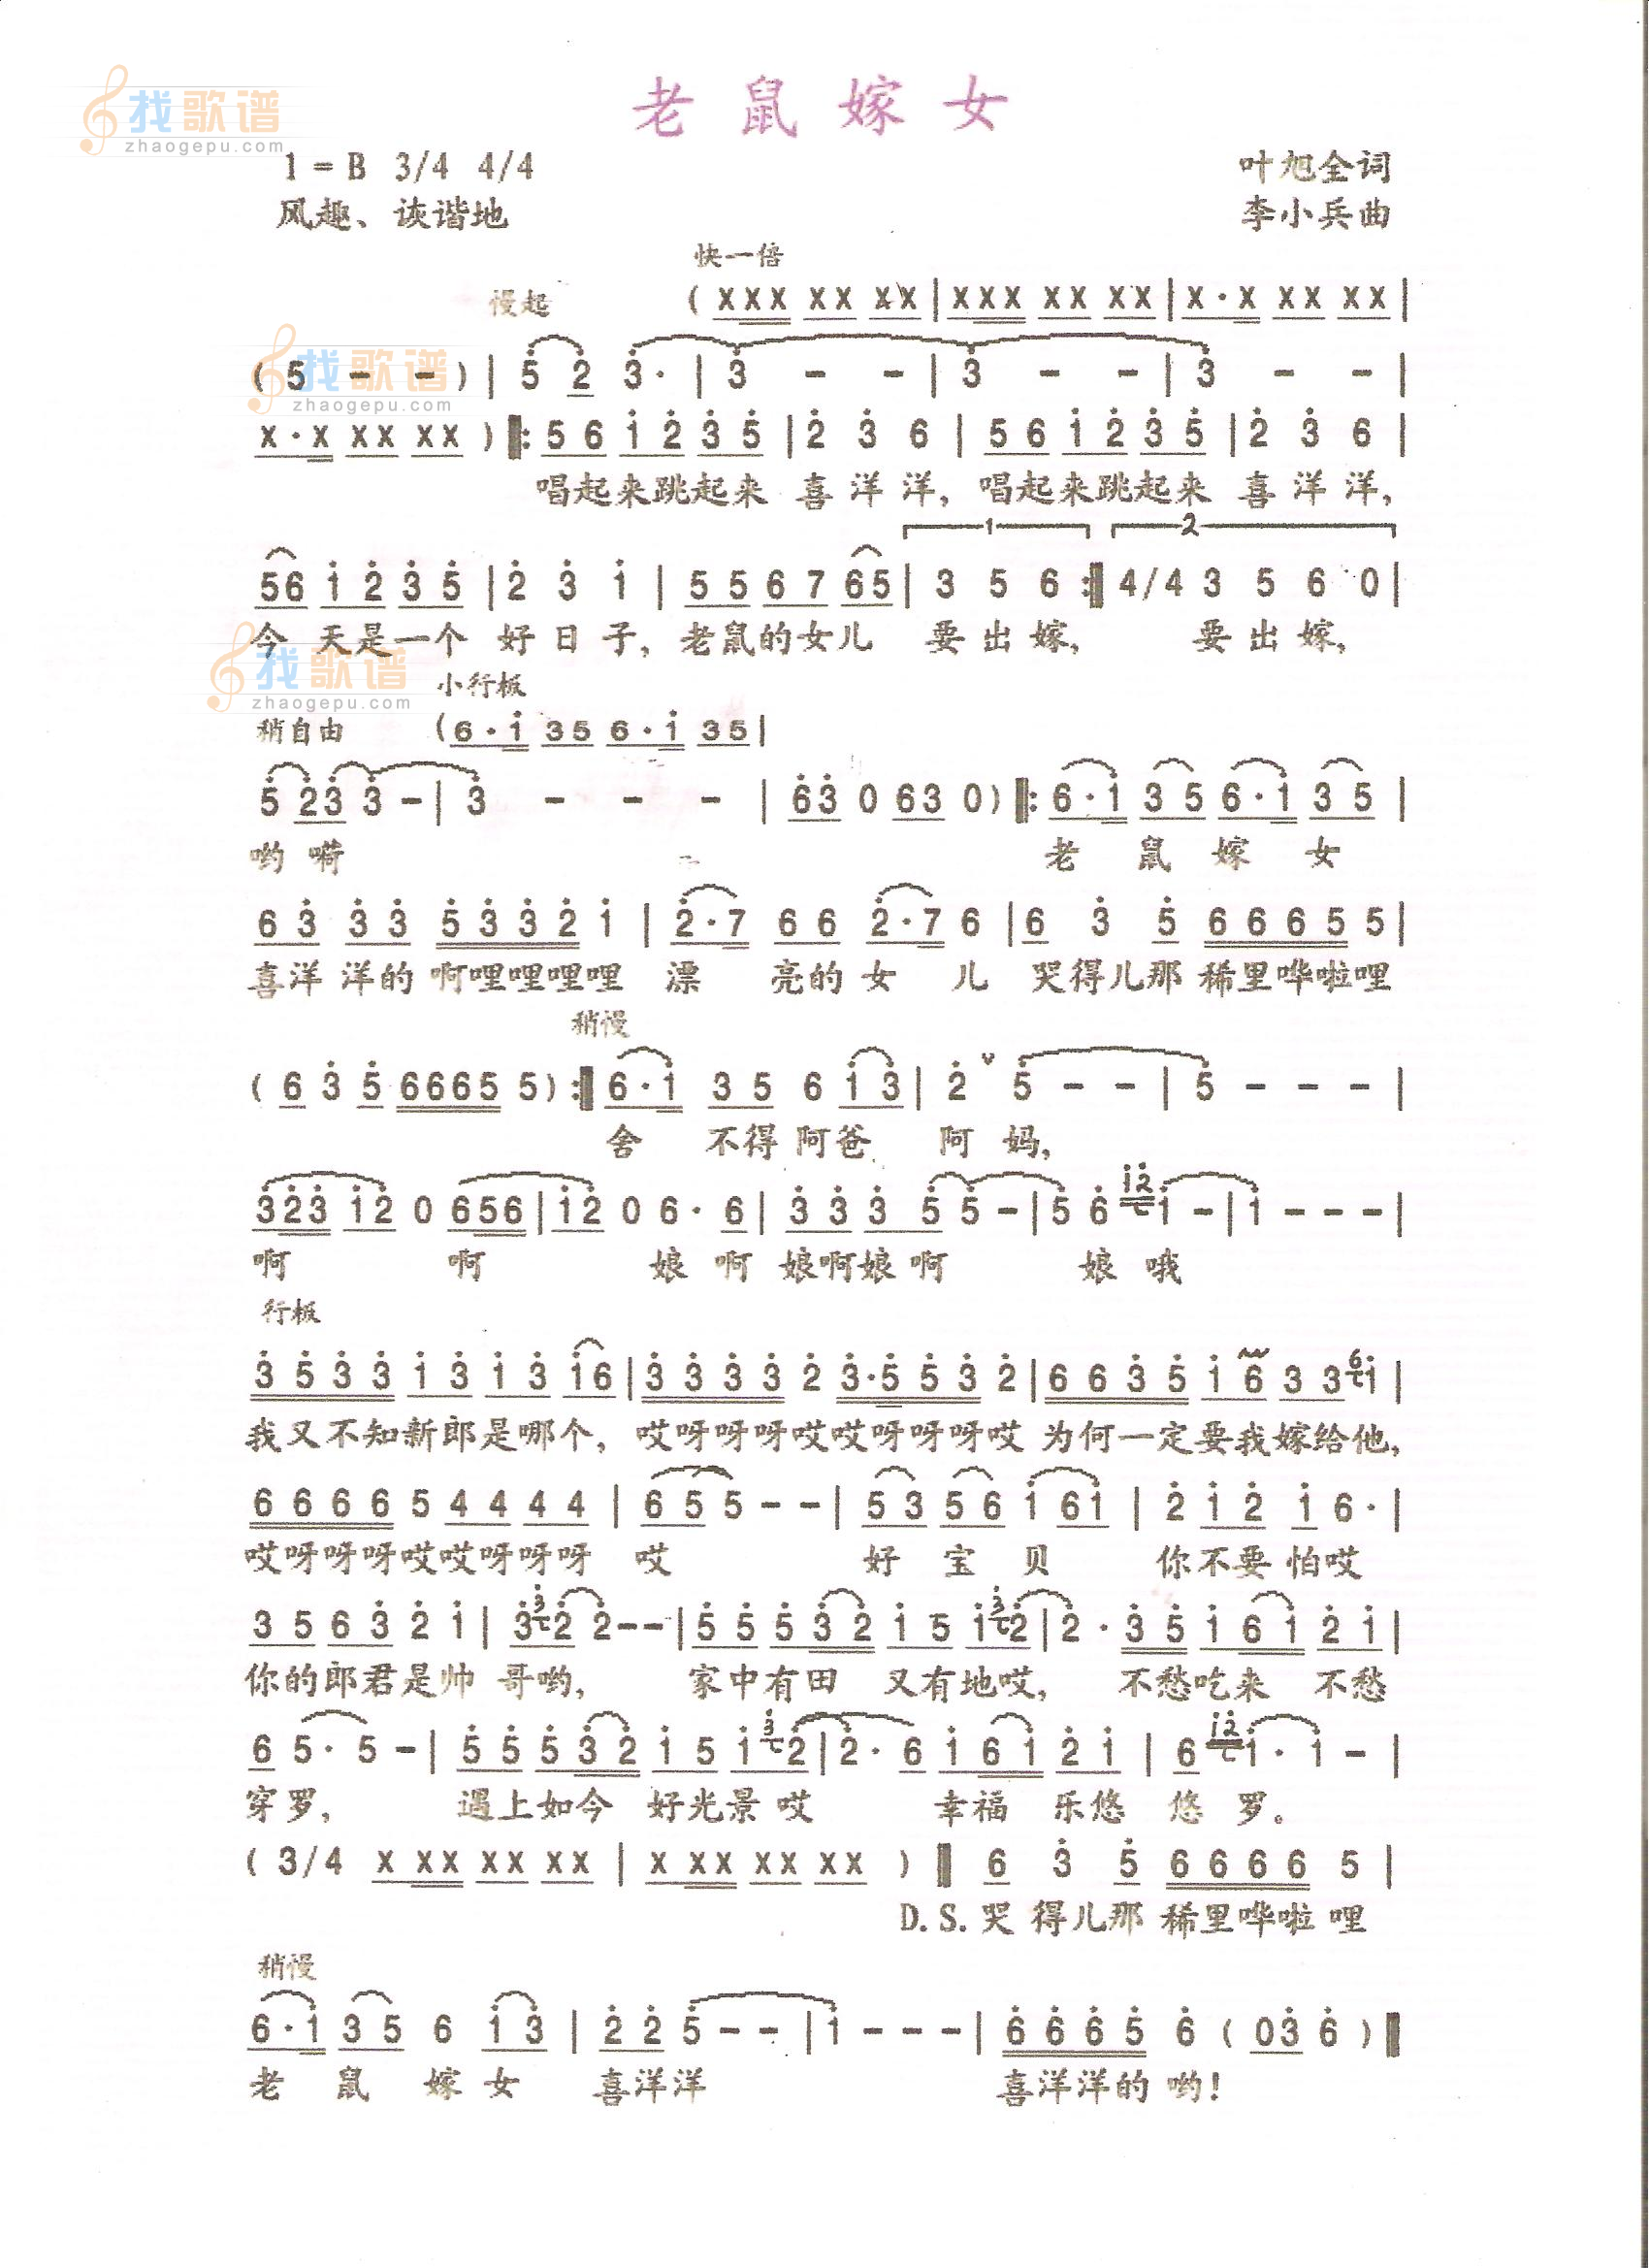 找歌谱
zhaogepu.com
老鼠嫁女
1 = B 3/4 4/4
叶旭全词
风趣、诙谐地
李小兵曲
快一倍
慢起
( X X X X X X X | X X X X X X X | X · X X X X X |
找歌谱
zhaogepu.com
( 5 - - ) | 5 2 3 · | 3 - - | 3 - - | 3 - - |
X · X X X X X ) ‖: 5 6 1 2 3 5 | 2 3 6 | 5 6 1 2 3 5 | 2 3 6 |
唱起来跳起来 喜洋洋, 唱起来跳起来 喜洋洋,
1 2
5 6 1 2 3 5 | 2 3 1 | 5 5 6 7 6 5 | 3 5 6 :‖ 4/4 3 5 6 0 |
今 天是一个 好日子, 老鼠的女儿 要出嫁, 要出嫁,
找歌谱
zhaogepu.com
小行板
稍自由 ( 6 · 1 3 5 6 · 1 3 5 |
5 2 3 3 - | 3 - - - | 6 3 0 6 3 0 ) ‖: 6 · 1 3 5 6 · 1 3 5 |
哟 嗬 老 鼠 嫁 女
6 3 3 3 5 3 3 2 1 | 2 · 7 6 6 2 · 7 6 | 6 3 5 6 6 6 5 5 |
喜洋 洋的 啊哩哩哩哩 漂 亮的 女 儿 哭得儿那 稀里哗啦哩
稍慢
( 6 3 5 6 6 6 5 5 ) :‖ 6 · 1 3 5 6 1 3 | 2 ∨ 5 - - | 5 - - - |
舍 不得 阿爸 阿 妈,
3 2 3 1 2 0 6 5 6 | 1 2 0 6 · 6 | 3 3 3 5 5 - | 5 6 1 2 1 - | 1 - - - |
啊 啊 娘 啊 娘啊娘 啊 娘 哦
行板
3 5 3 3 1 3 1 3 1 6 | 3 3 3 3 2 3 · 5 5 3 2 | 6 6 3 5 1 6 3 3 6 1 |
我又不知新郎是哪个, 哎呀呀呀哎哎呀呀呀哎 为何一定要我嫁给他,
6 6 6 6 5 4 4 4 4 | 6 5 5 - - | 5 3 5 6 1 6 1 | 2 1 2 1 6 · |
哎呀呀呀哎哎呀呀呀 哎 好 宝 贝 你不要 怕哎
3 5 6 3 2 1 | 3 3 2 2 - - | 5 5 5 3 2 1 5 1 3 2 | 2 · 3 5 1 6 1 2 1 |
你的郎君是帅 哥哟, 家中有田 又有地哎, 不愁吃来 不愁
6 5 · 5 - | 5 5 5 3 2 1 5 1 3 2 | 2 · 6 1 6 1 2 1 | 6 1 2 1 · 1 - |
穿罗, 遇上如今 好光景 哎 幸福 乐悠 悠 罗。
( 3/4 X X X X X X X | X X X X X X X ) ‖ 6 3 5 6 6 6 6 5 |
D.S. 哭 得儿那 稀里哗啦 哩
稍慢
6 · 1 3 5 6 1 3 | 2 2 5 - - | 1 - - - | 6 6 6 5 6 ( 0 3 6 ) ‖
老 鼠 嫁 女 喜洋洋 喜洋洋的 哟!